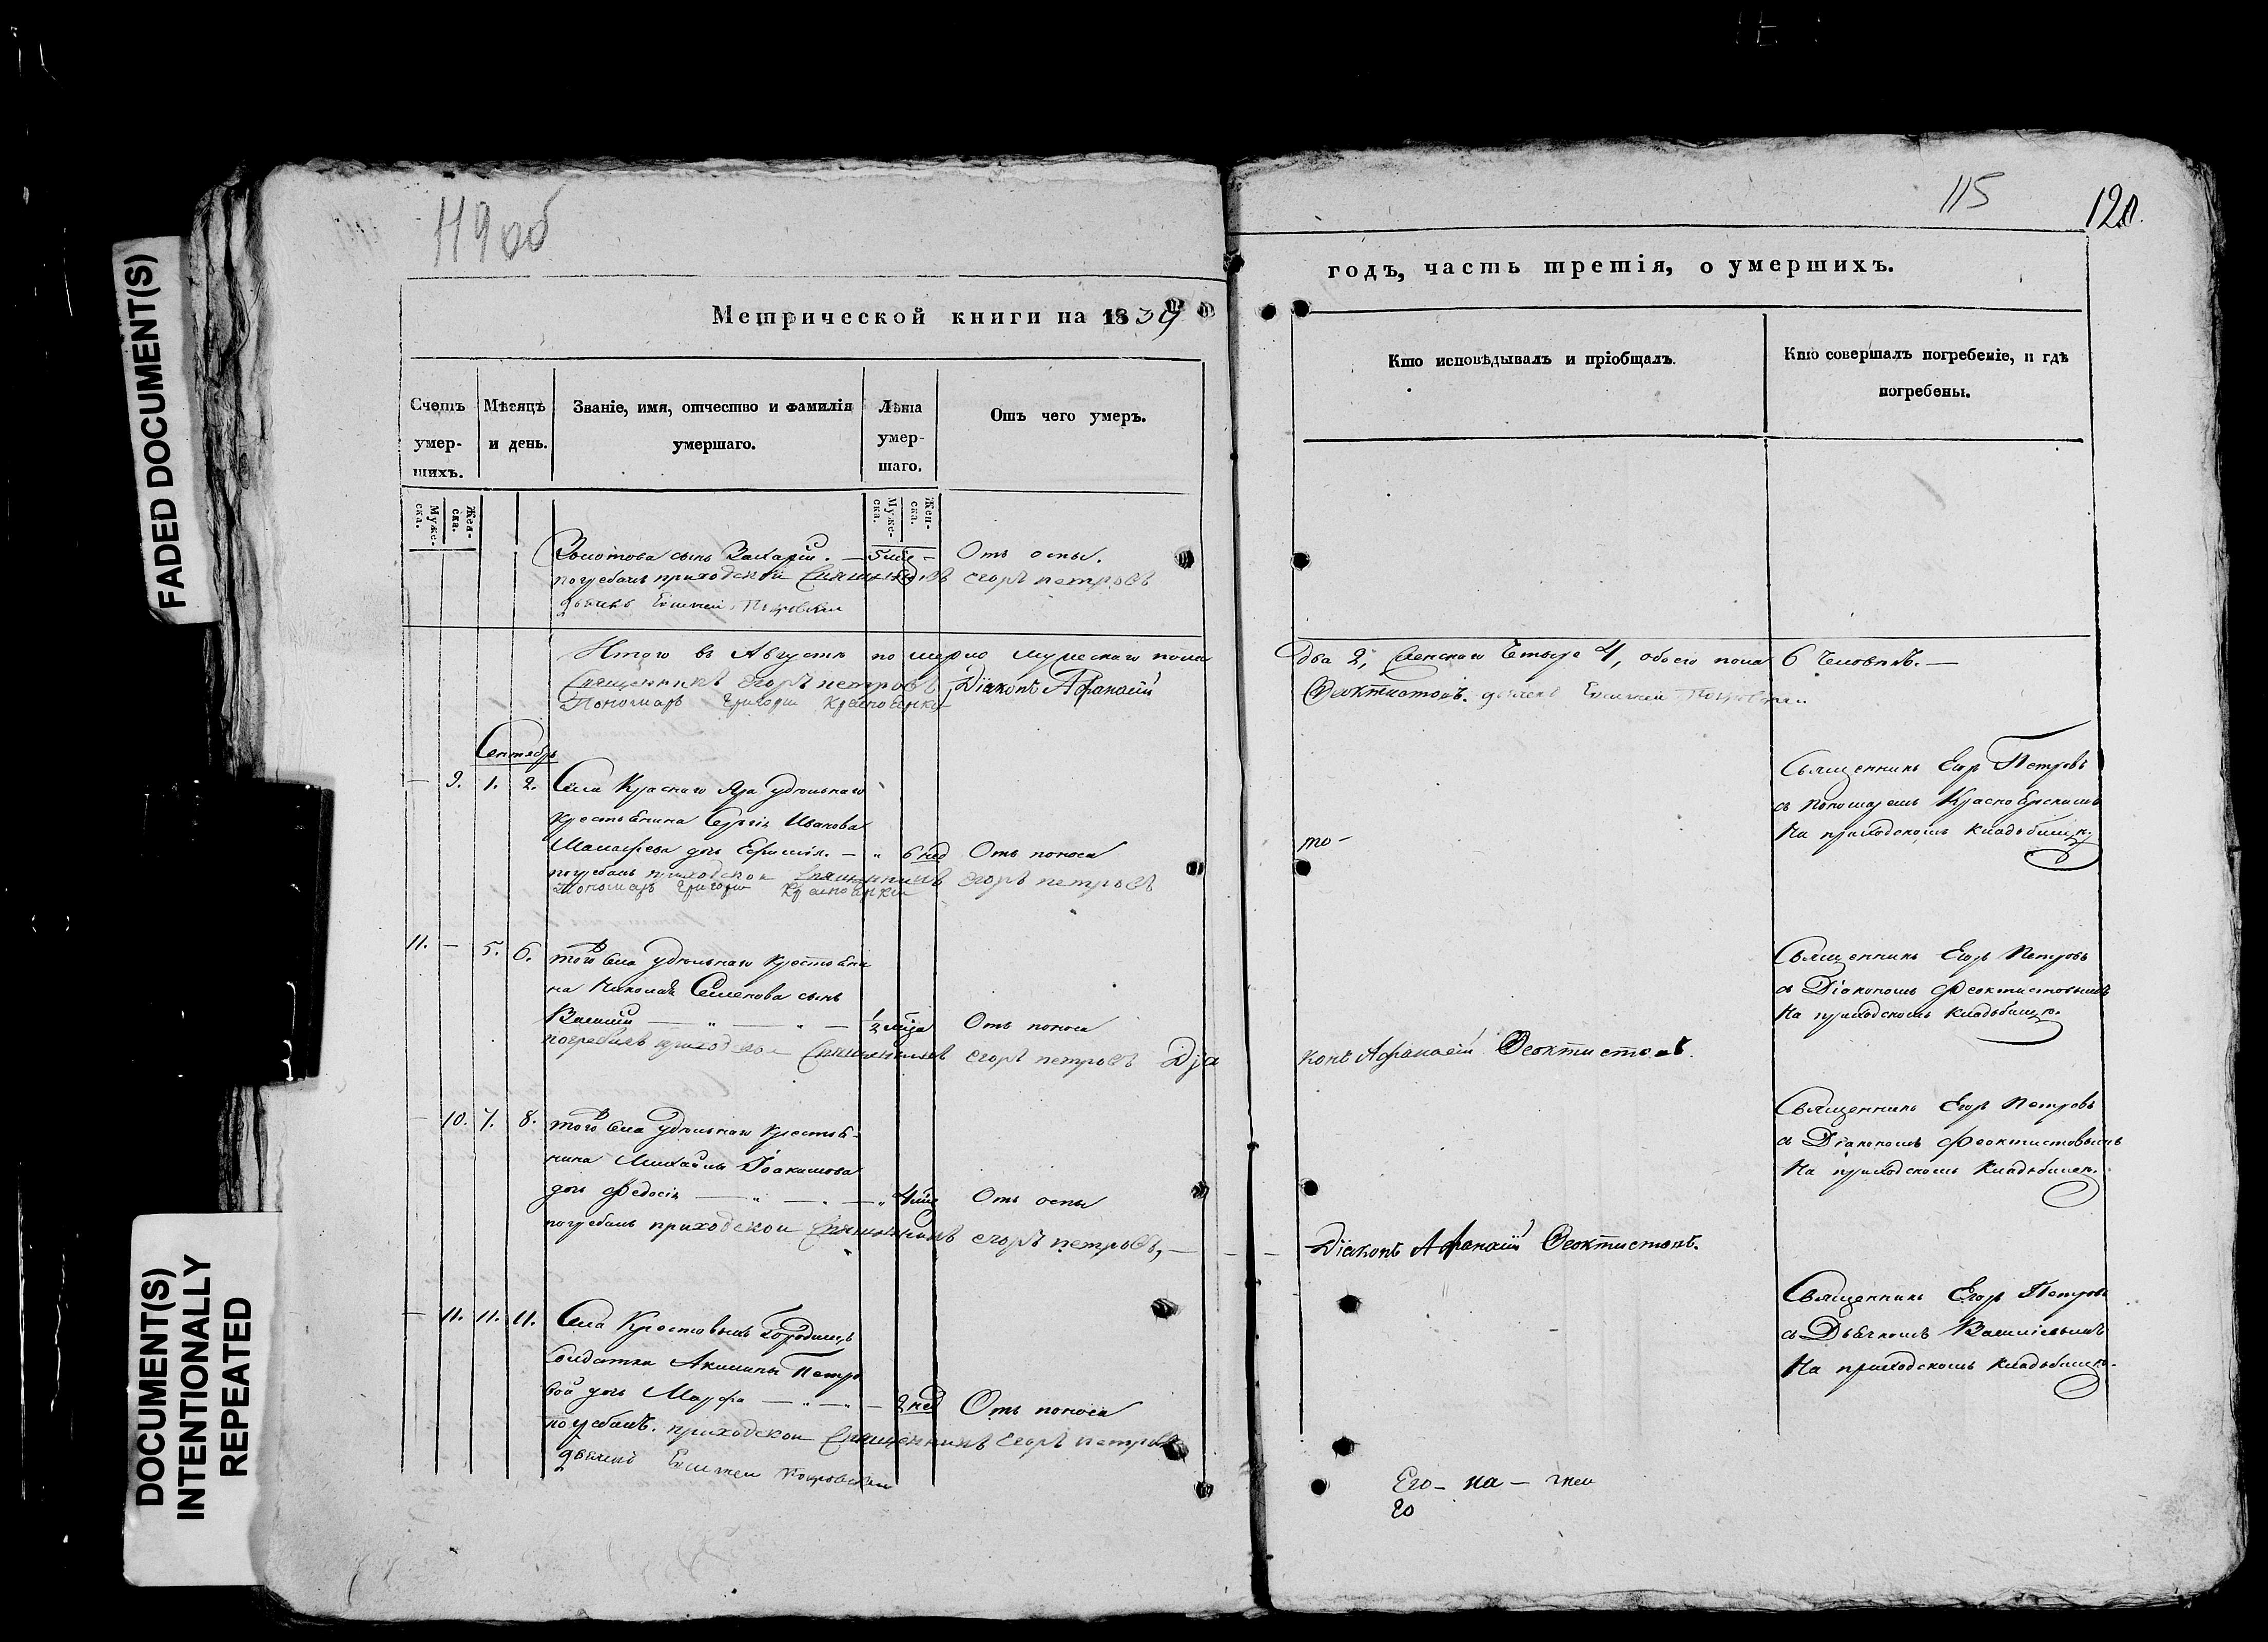 FADED DOCUMENT(S)
DOCUMENT(S)
INTENTIONALLY
REPEATED
119 об
Метрической книги на 1839
Счетъ умер-шихъ.
Мѣсяцъ и день.
Званіе, имя, отчество и фамилія умершаго.
Лѣта умер-шаго.
Отъ чего умеръ.
Муже-ска.
Жен-ска.
Муже-ска.
Жен-ска.
Золотова сынъ Захарій. — 5 Отъ оспы.
погребалъ приходской Священникъ Егоръ Петровъ
дьячекъ Покровскій
Итого въ Августѣ померло мужескаго пола
Священникъ Егоръ Петровъ, Діаконъ Афанасій
Пономарь Григорій Красноярскій
Сентябрь
— 9. 1. 2. Села Краснаго Яра удѣльнаго
крестьянина Сергія Иванова
дочь Евфимія. — „ 6 нед Отъ поноса
погребалъ приходской Священникъ Егоръ Петровъ
Пономарь Григорій Красноярскій
11. — 5. 6. того села удѣльнаго крестьяни
на Николая Семенова сынъ
Василій — „ — „ — ½ мѣца Отъ поноса
погребалъ приходской Священникъ Егоръ Петровъ Діа
— 10. 7. 8. того села удѣльнаго крестья-
нина Михаила Іоакимова
дочь Федосія — „ — „ — „ 4 Отъ оспы
погребалъ приходской Священникъ Егоръ Петровъ, —
— 11. 11. 11. Села Крестовыхъ Городищъ
солдатки Акилины Петро
вой дочь Марфа — „ — „ — 2 нед Отъ поноса
погребалъ. приходской Священникъ Егоръ Петровъ
дьячекъ Покровскій
115
120.
годъ, часть третія, о умершихъ.
Кто исповѣдывалъ и пріобщалъ.
Кто совершалъ погребеніе, и гдѣ
погребены.
два 2, женскаго Четыре 4, обоего пола 6 человѣкъ. —
Феоктистовъ. дьячекъ Покровскій
Священникъ Егоръ Петровъ
съ пономаремъ Красноярскимъ
На приходскомъ кладбищѣ.
то -
Священникъ Егоръ Петровъ
съ Діакономъ Феоктистовымъ
На приходскомъ кладбищѣ.
конъ Афанасій Феоктистовъ.
Священникъ Егоръ Петровъ
съ Діакономъ Феоктистовымъ
На приходскомъ кладбищѣ.
— Діаконъ Афанасій Феоктистовъ.
Священникъ Егоръ Петровъ
съ Дьячкомъ Василіевымъ
На приходскомъ кладбищѣ.
Его — на —
го